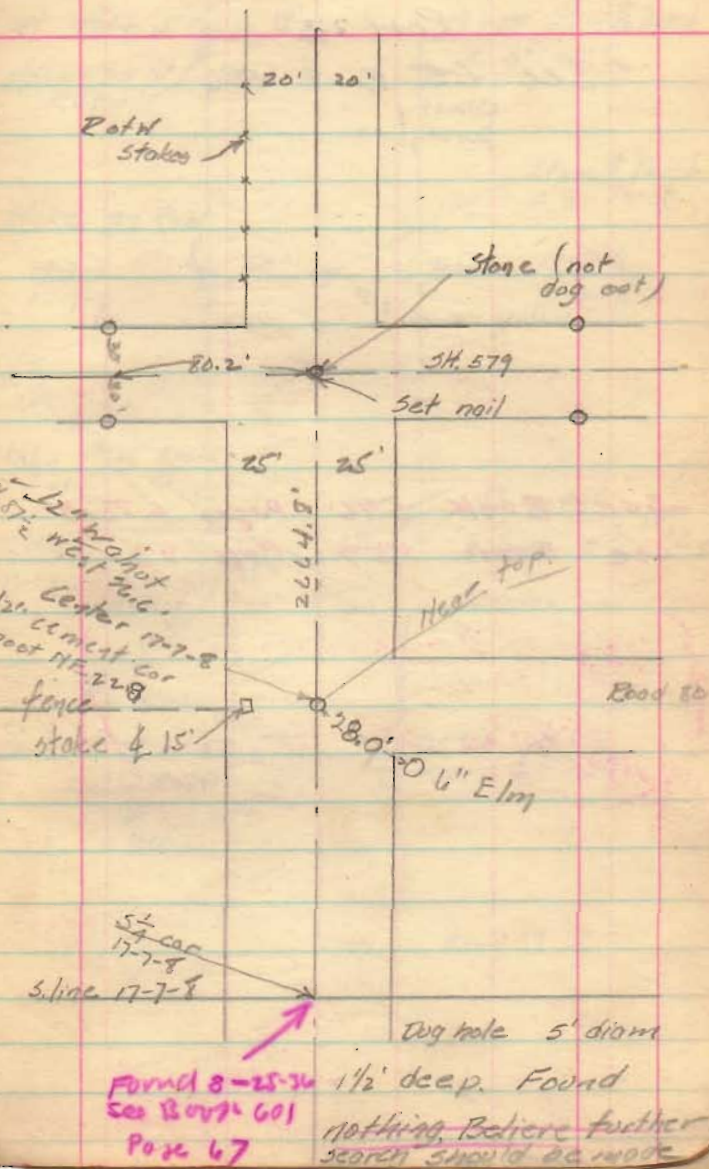 20' 20'
R of W
stakes
Stone (not
dog oot)
30'
80.2'
SH. 579
80'
Set nail
25' 25'
12" Walnot
West 36.6'
2664.8'
Near top.
Center 17-7-8
cement cor
NE 22.8
fence
stake ¢ 15'
Road 80
28.0'
6" Elm
S¼ cor
17-7-8
S. line 17-7-8
Dug hole 5' diam
1½' deep. Found
nothing. Believe further
search should be made
Found 8-25-36
See Book 601
Page 67